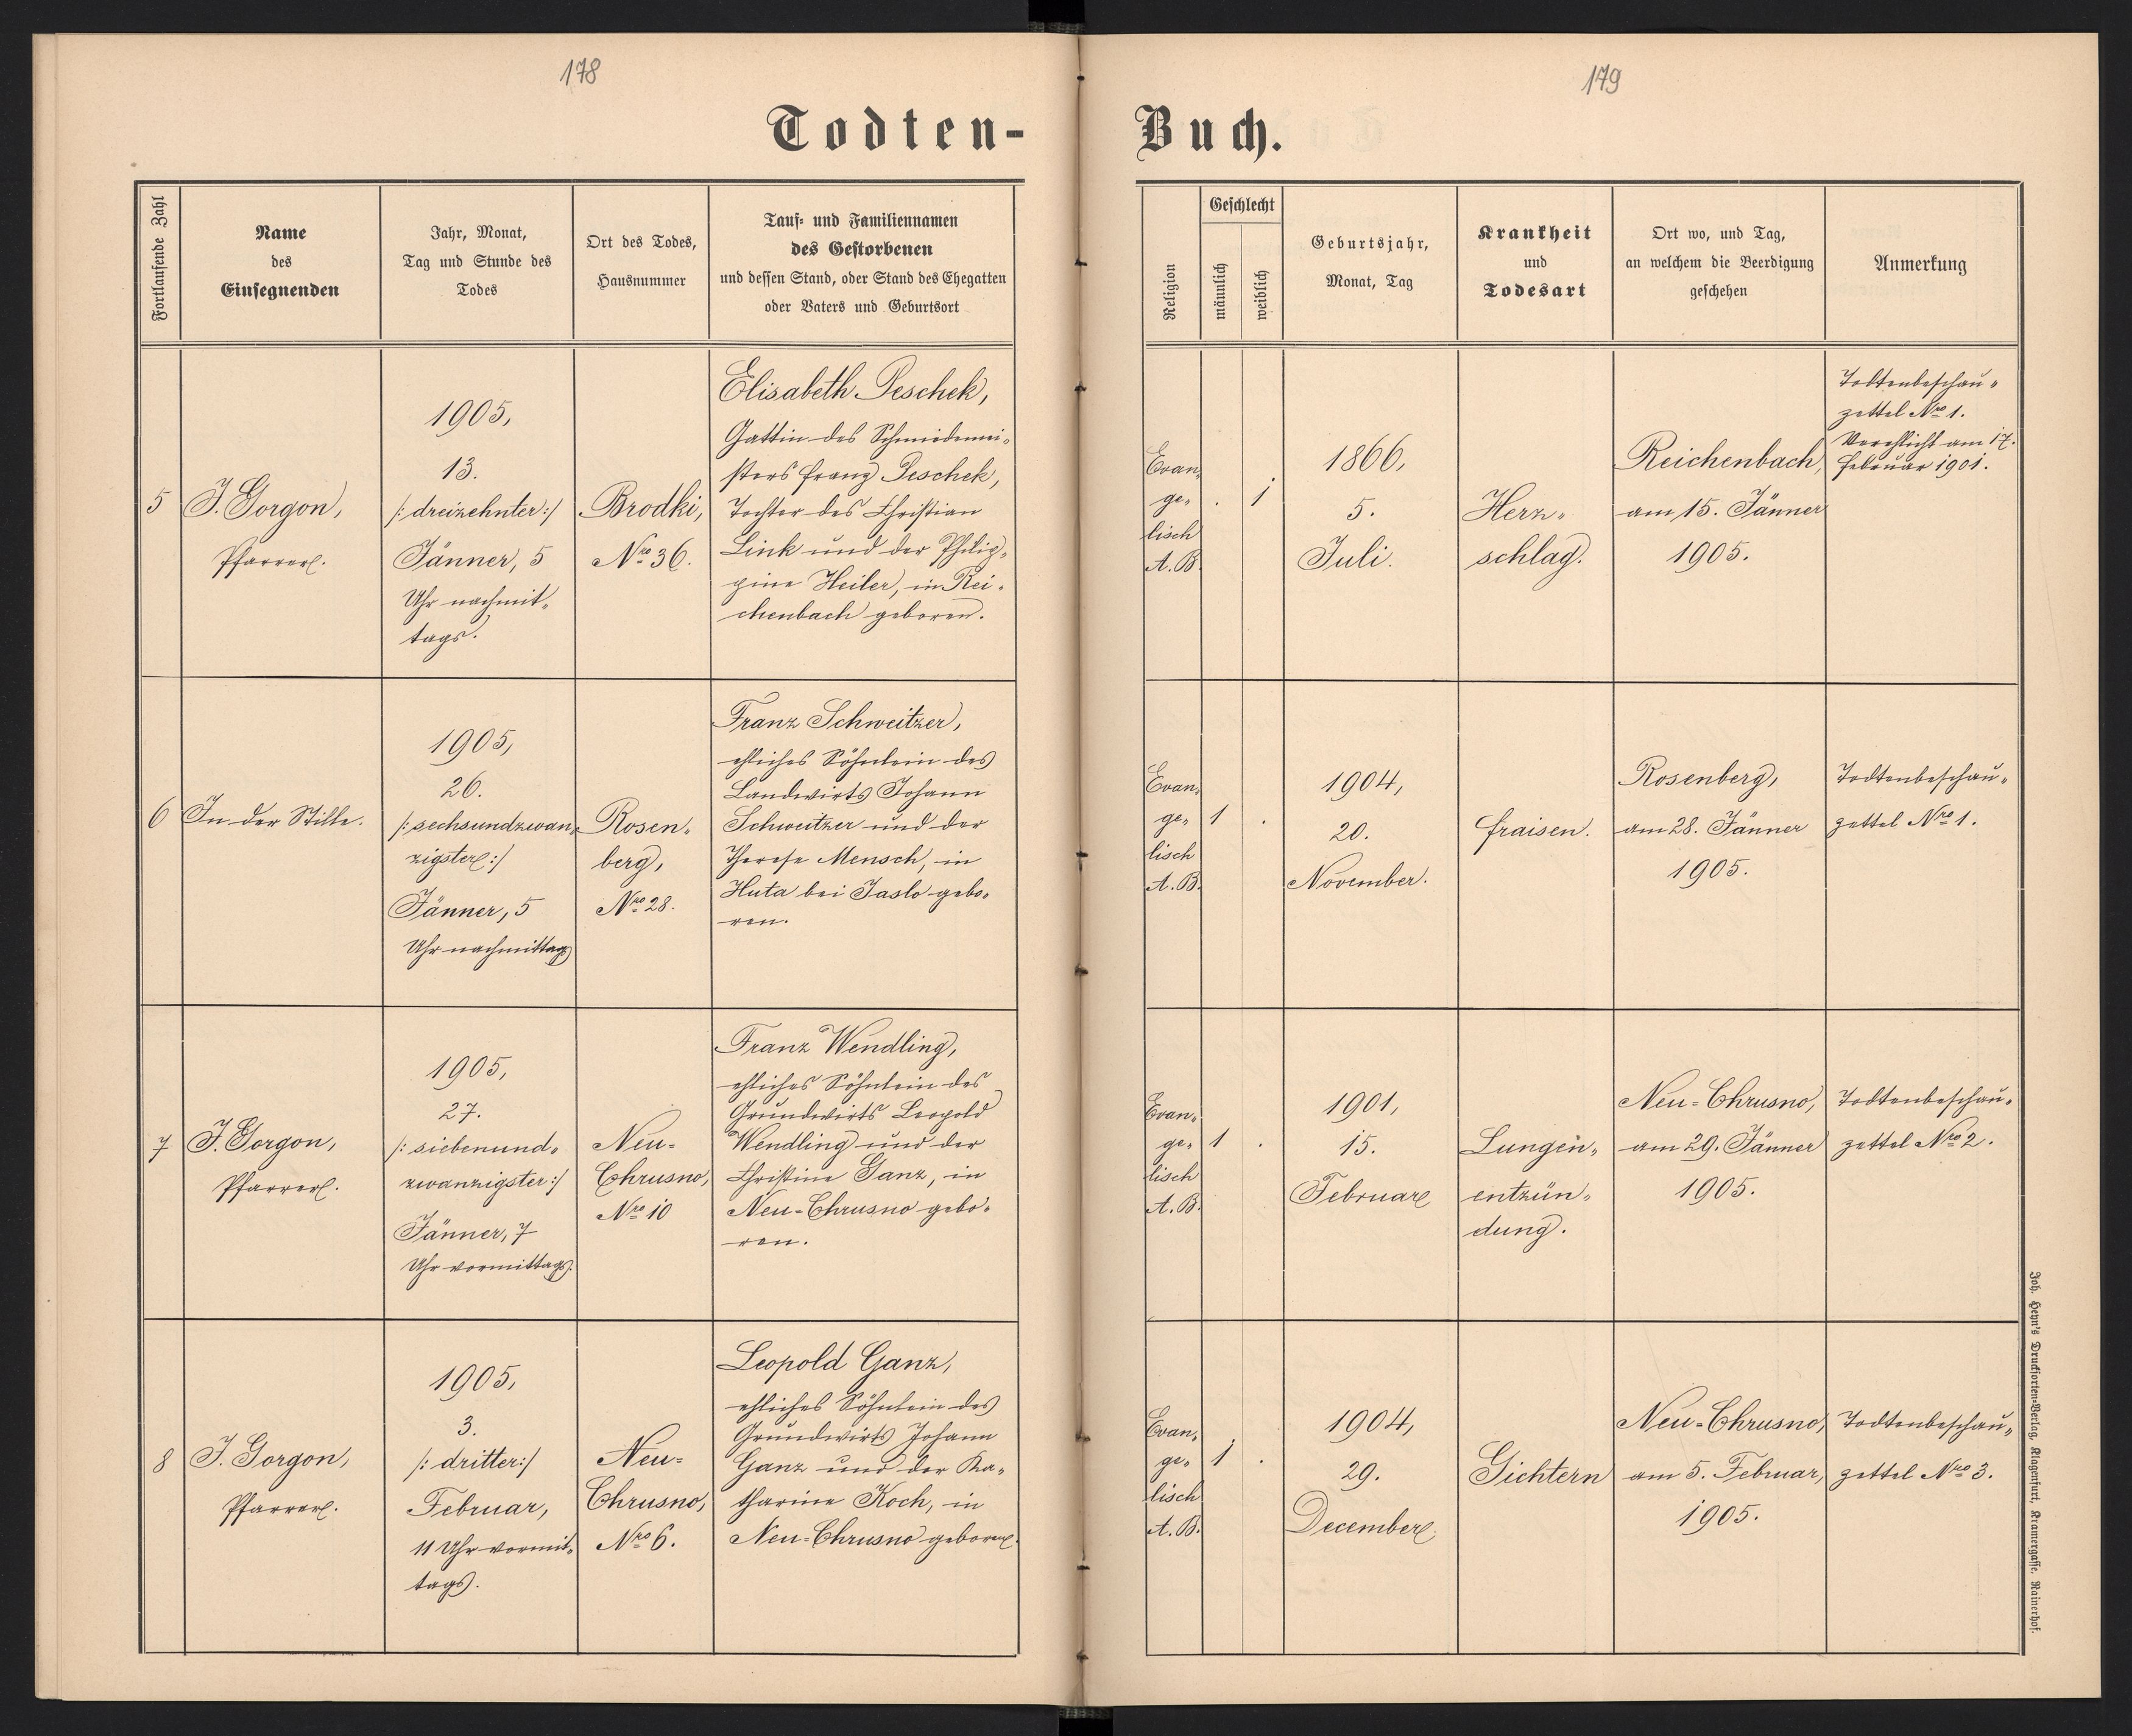 178
Todten-
Fortlaufende Zahl
Name
des
Einsegnenden
Jahr, Monat,
Tag und Stunde des
Todes
Ort des Todes,
Hausnummer
Tauf- und Familiennamen
des Gestorbenen
und dessen Stand, oder Stand des Ehegatten
oder Vaters und Geburtsort
5
J. Gorgon,
Pfarrer.
1905,
13.
/: dreizehnter :/
Jänner, 5
Uhr nachmit-
tags.
Brodki,
Nro 36.
Elisabeth Peschek,
Gattin des Schmiedemei-
sters Franz Peschek,
Tochter des Christian
Link und der Philip-
pine Heiler, in Rei-
chenbach geboren.
6
In der Stille.
1905,
26.
/: sechsundzwan-
zigster :/
Jänner, 5
Uhr nachmittags
Rosen-
berg,
Nro 28.
Franz Schweitzer,
ehliches Söhnlein des
Landwirts Johann
Schweitzer und der
Therese Mensch, in
Huta bei Jaslo gebo-
ren.
7
J. Gorgon,
Pfarrer.
1905,
27.
/: siebenund-
zwanzigster :/
Jänner, 7
Uhr vormittags.
Neu-
Chrusno,
Nro 10
Franz Wendling,
ehliches Söhnlein des
Grundwirts Leopold
Wendling und der
Christine Ganz, in
Neu-Chrusno gebo-
ren.
8
J. Gorgon,
Pfarrer.
1905,
3.
/: dritter :/
Februar,
11 Uhr vormit-
tags.
Neu-
Chrusno,
Nro 6.
Leopold Ganz,
ehliches Söhnlein des
Grundwirts Johann
Ganz und der Ka-
tharine Koch, in
Neu-Chrusno geboren.
179
Buch.
Religion
Geschlecht
männlich
weiblich
Geburtsjahr,
Monat, Tag
Krankheit
und
Todesart
Ort wo, und Tag,
an welchem die Beerdigung
geschehen
Anmerkung
Evan-
ge-
lisch
A. B.
. 1
1866,
5.
Juli.
Herz-
schlag.
Reichenbach,
am 15. Jänner
1905.
Todtenbeschau-
zettel Nro 1.
Verehlicht am 17.
Februar 1901.
Evan-
ge-
lisch
A. B.
1 .
1904,
20.
November.
Fraisen.
Rosenberg,
am 28. Jänner
1905.
Todtenbeschau-
zettel Nro 1.
Evan-
ge-
lisch
A. B.
1 .
1901,
15.
Februar
Lungen-
entzün-
dung.
Neu-Chrusno,
am 29. Jänner
1905.
Todtenbeschau-
zettel Nro 2.
Evan-
ge-
lisch
A. B.
1 .
1904,
29.
December.
Gichtern
Neu-Chrusno,
am 5. Februar,
1905.
Todtenbeschau-
zettel Nro 3.
Joh. Heyn's Drucksorten-Verlag, Klagenfurt, Kramergasse, Rainerhof.